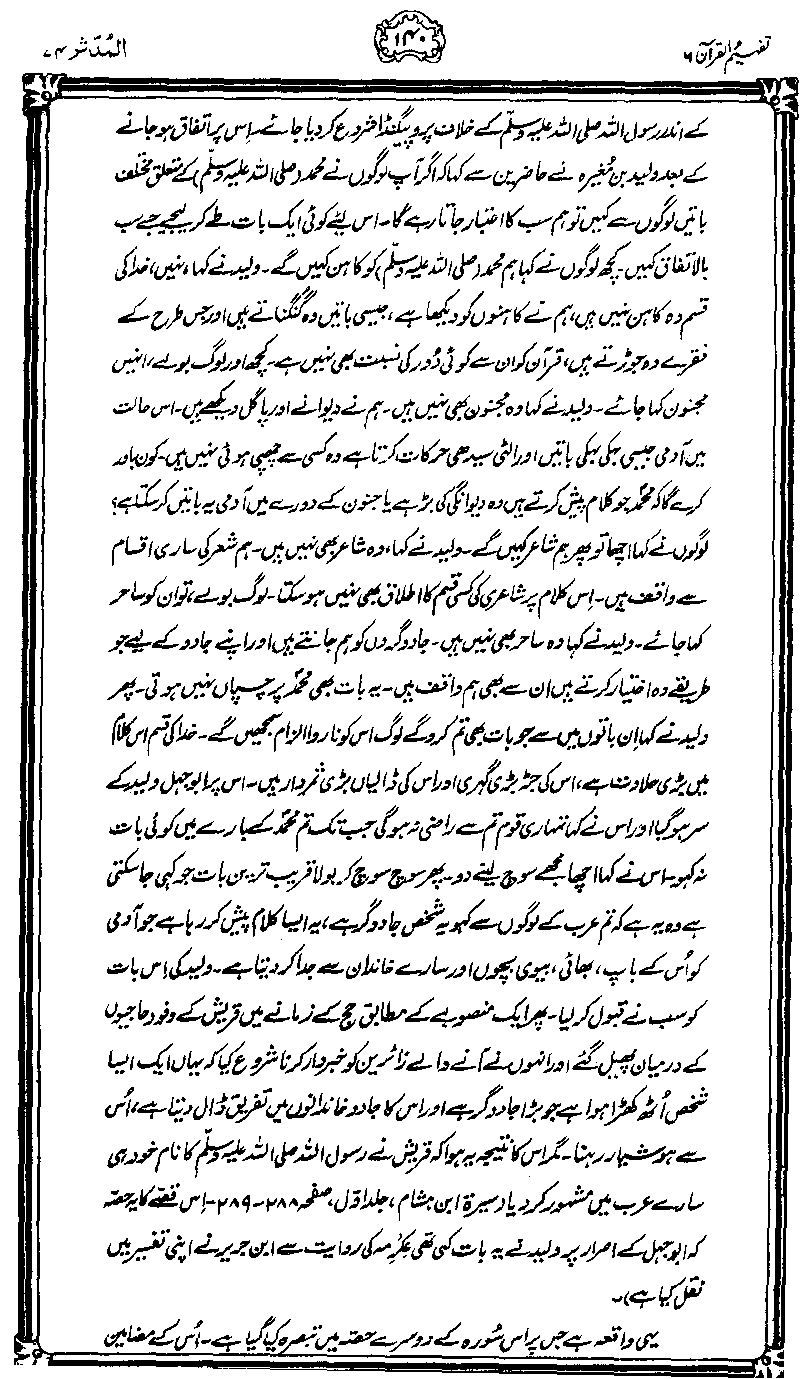 تفہیم القرآن ۶
۱۴۰
المُدَّثر ۷۴
کے اندر رسول اللہ صلی اللہ علیہ وسلّم کے خلاف پروپیگنڈا شروع کر دیا جائے۔ اِس پر اتفاق ہو جانے
کے بعد ولید بن مُغیرہ نے حاضرین سے کہا کہ اگر آپ لوگوں نے محمد (صلی اللہ علیہ وسلّم) کے متعلق مختلف
باتیں لوگوں سے کہیں تو ہم سب کا اعتبار جاتا رہے گا۔ اس لیٔے کوئی ایک بات طے کر لیجیے جسے سب
بالاتفاق کہیں۔ کچھ لوگوں نے کہا ہم محمد (صلی اللہ علیہ وسلّم) کو کاہن کہیں گے۔ ولید نے کہا، نہیں، خدا کی
قسم وہ کاہن نہیں ہیں، ہم نے کاہنوں کو دیکھا ہے، جیسی باتیں وہ گنگناتے ہیں اور جس طرح کے
فقرے وہ جوڑتے ہیں، قرآن کو ان سے کوئی دُور کی نسبت بھی نہیں ہے۔ کچھ اور لوگ بولے، انہیں
مجنون کہا جائے۔ ولید نے کہا وہ مجنون بھی نہیں ہیں۔ ہم نے دیوانے اور پاگل دیکھے ہیں۔ اس حالت
میں آدمی جیسی بہکی بہکی باتیں اور الٹی سیدھی حرکات کرتا ہے وہ کسی سے چھپی ہوئی نہیں ہیں۔ کون باور
کرے گا کہ محمدؐ جو کلام پیش کرتے ہیں وہ دیوانگی کی بڑ ہے یا جنون کے دورے میں آدمی یہ باتیں کر سکتا ہے؟
لوگوں نے کہا، اچھا تو پھر ہم شاعر کہیں گے۔ ولید نے کہا، وہ شاعر بھی نہیں ہیں۔ ہم شعر کی ساری اقسام
سے واقف ہیں۔ اِس کلام پر شاعری کی کسی قسم کا اطلاق بھی نہیں ہو سکتا۔ لوگ بولے، تو ان کو ساحر
کہا جائے۔ ولید نے کہا وہ ساحر بھی نہیں ہیں۔ جادوگروں کو ہم جانتے ہیں اور اپنے جادو کے لیے جو
طریقے وہ اختیار کرتے ہیں ان سے بھی ہم واقف ہیں۔ یہ بات بھی محمدؐ پر چسپاں نہیں ہوتی۔ پھر
ولید نے کہا اِن باتوں میں سے جو بات بھی تم کرو گے لوگ اس کو ناروا الزام سمجھیں گے۔ خدا کی قسم اس کلام
میں بڑی حلاوت ہے، اس کی جڑ بڑی گہری اور اس کی ڈالیاں بڑی ثمردار ہیں۔ اس پر ابوجہل ولید کے
سر ہو گیا اور اس نے کہا تمہاری قوم تم سے راضی نہ ہوگی جب تک تم محمدؐ کے بارے میں کوئی بات
نہ کہو۔ اس نے کہا اچھا مجھے سوچ لینے دو۔ پھر سوچ سوچ کر بولا قریب ترین بات جو کہی جا سکتی
ہے وہ یہ ہے کہ تم عرب کے لوگوں سے کہو یہ شخص جادوگر ہے، یہ ایسا کلام پیش کر رہا ہے جو آدمی
کو اُس کے باپ، بھائی، بیوی بچوں اور سارے خاندان سے جدا کر دیتا ہے۔ ولید کی اس بات
کو سب نے قبول کر لیا۔ پھر ایک منصوبے کے مطابق حج کے زمانے میں قریش کے وفود حاجیوں
کے درمیان پھیل گئے اور انہوں نے آنے والے زائرین کو خبردار کرنا شروع کیا کہ یہاں ایک ایسا
شخص اُٹھ کھڑا ہوا ہے جو بڑا جادوگر ہے اور اس کا جادو خاندانوں میں تفریق ڈال دیتا ہے، اُس
سے ہوشیار رہنا۔ مگر اس کا نتیجہ یہ ہوا کہ قریش نے رسول اللہ صلی اللہ علیہ وسلّم کا نام خود ہی
سارے عرب میں مشہور کر دیا (سیرۃ ابن ہشام، جلد اوّل، صفحہ ۲۸۸-۲۸۹۔ اِس قصّے کا یہ حصّہ
کہ ابوجہل کے اصرار پر ولید نے یہ بات کہی تھی عکرمہ کی روایت سے ابن جریر نے اپنی تفسیر میں
نقل کیا ہے)۔
یہی واقعہ ہے جس پر اس سُورہ کے دوسرے حصّہ میں تبصرہ کیا گیا ہے۔ اُس کے مضامین